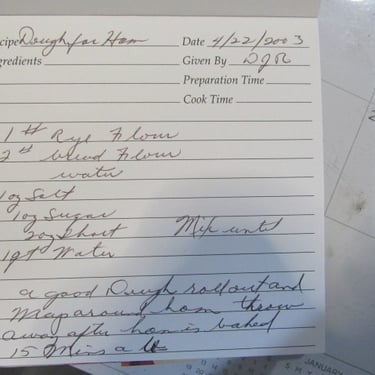 ecipe Dough for Ham Date 4/22/2003
gredients Given By DJR
Preparation Time
Cook Time
1 # Rye Flour
2 # bread Flour
water
1oz Salt
1oz Sugar
2oz Short Mix until
1qt Water
a good Dough roll out and
Wrap around ham throw
away after ham is baked
15 Mins a lb
JANUARY
S M